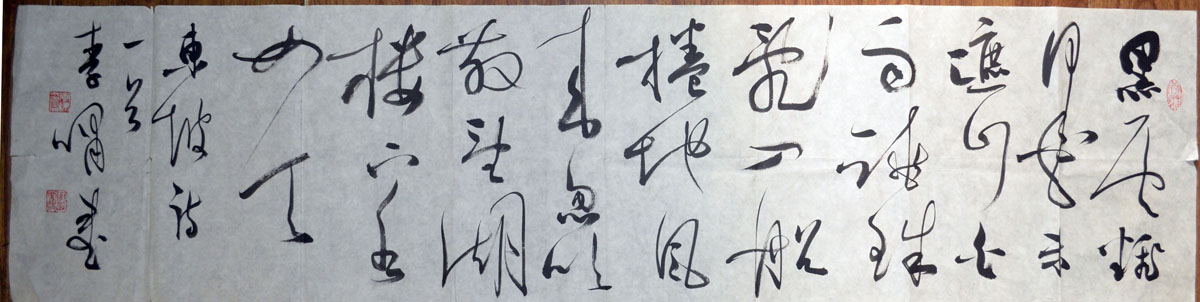 黑云翻
墨未
遮山白
雨跳珠
亂入船
捲地風
來忽吹
散望湖
樓下水
如天
東坡詩
一首
李